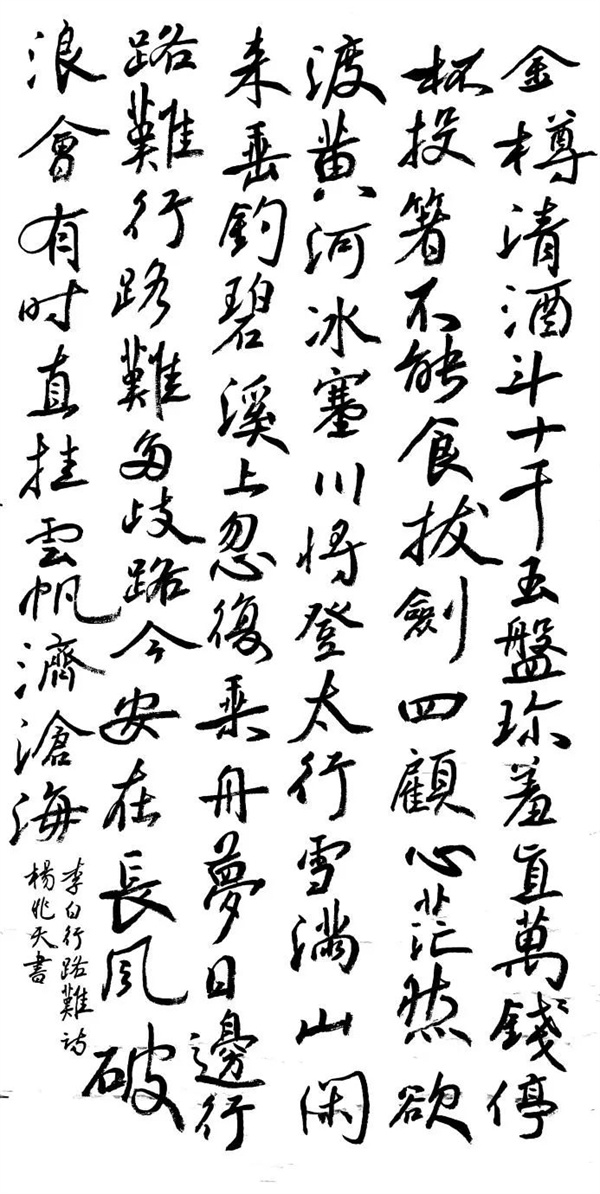 金樽清酒斗十千玉盤珎羞直萬錢停
杯投箸不能食拔劍四顧心茫然欲
渡黃河冰塞川將登太行雪滿山閑
來垂釣碧溪上忽復乘舟夢日邊行
路難行路難多歧路今安在長風破
浪會有时直挂雲帆濟滄海
李白行路難詩
楊兆天書